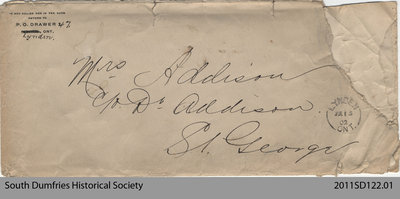 IF NOT CALLED FOR IN TEN DAYS
RETURN TO
P. O. DRAWER 47
ONT.
Lynden,
Mrs Addison
c/o Dr Addison.
St. George
LYNDEN
ONT.
South Dumfries Historical Society
2011SD122.01